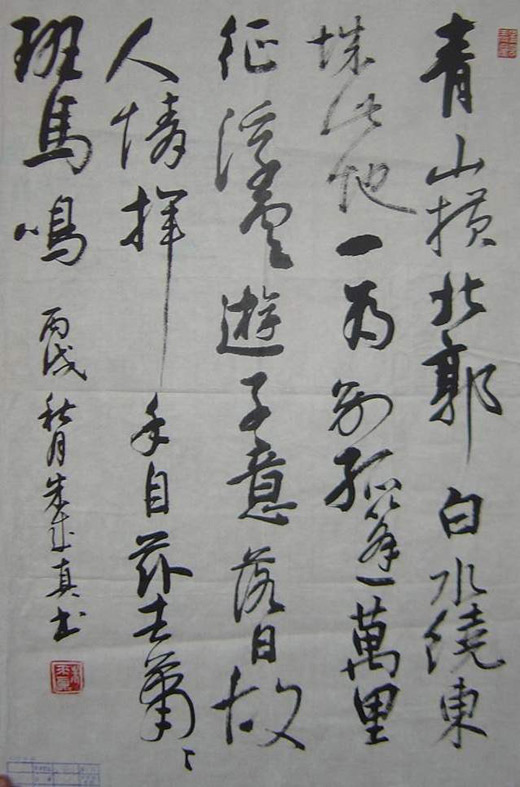 青山横北郭白水繞東
城此地一為別孤蓬萬里
征浮雲遊子意落日故
人情揮手自茲去蕭々
班馬鳴 丙戌秋月朱成真書